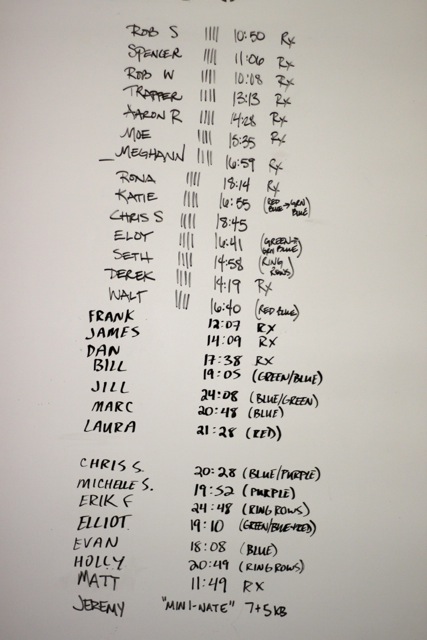 ROB S |||| 10:50 Rx
SPENCER |||| 11:06 Rx
ROB W |||| 10:08 Rx
TRAPPER |||| 13:13 Rx
AARON R |||| 14:28 Rx
MOE |||| 15:35 Rx
MEGHANN |||| 16:59 Rx
RONA |||| 18:14 Rx
KATIE |||| 16:55 (RED BLUE→GRN BLUE)
CHRIS S |||| 18:45
ELOY |||| 16:41 (GREEN→ BLUE)
SETH |||| 14:58 (RING ROWS)
DEREK |||| 14:19 Rx
WALT |||| 16:40 (RED BLUE)
FRANK 12:07 RX
JAMES 14:09 RX
DAN 17:38 RX
BILL 19:05 (GREEN/BLUE)
JILL 24:08 (BLUE/GREEN)
MARC 20:48 (BLUE)
LAURA 21:28 (RED)
CHRIS S. 20:28 (BLUE/PURPLE)
MICHELLE S. 19:52 (PURPLE)
ERIK F 24:48 (RING ROWS)
ELLIOT 19:10 (GREEN/BLUE→RED)
EVAN 18:08 (BLUE)
HOLLY 20:49 (RING ROWS)
MATT 11:49 RX
JEREMY "MINI-NATE" 7+5KB